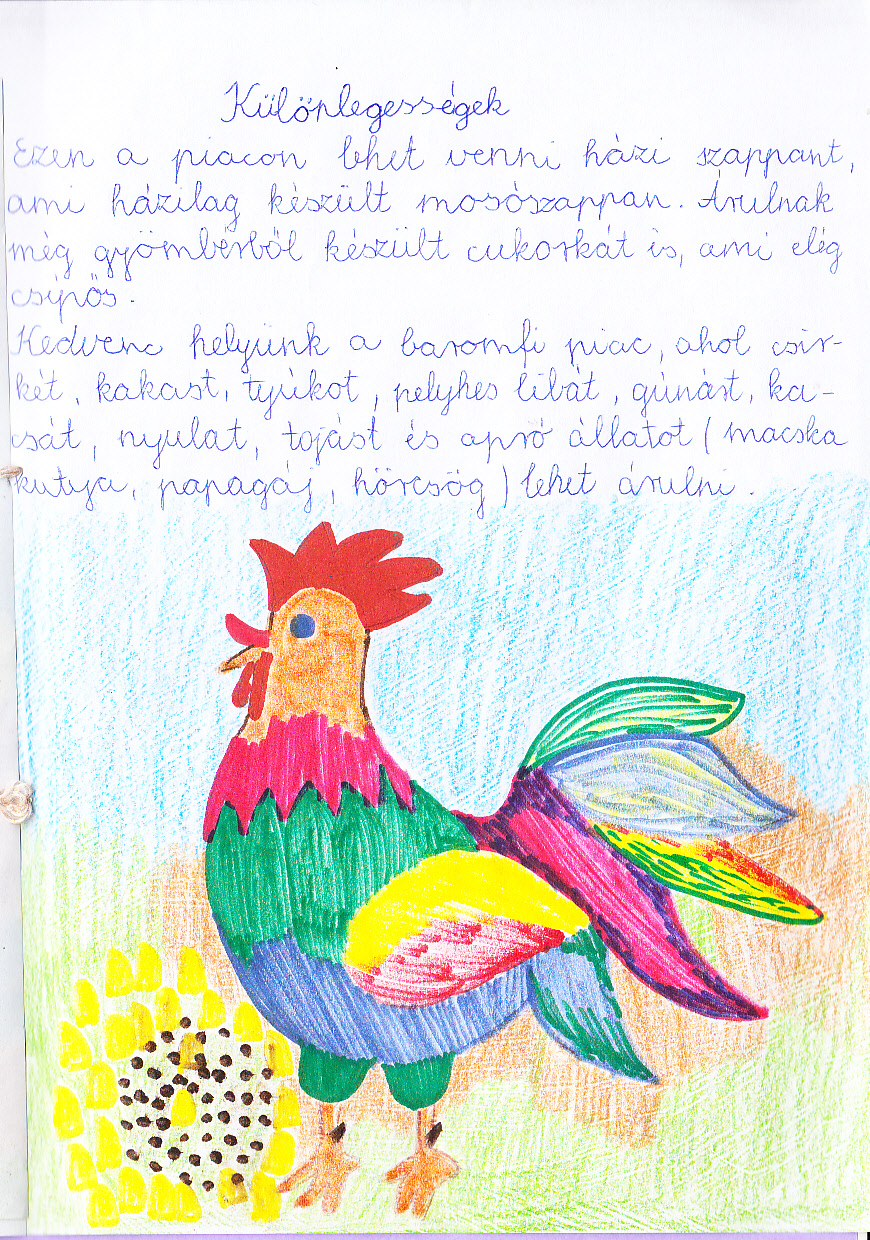 Különlegességek
Ezen a piacon lehet venni házi szappant,
ami házilag készült mosószappan. Árulnak
még gyömbérből készült cukorkát is, ami elég
csípős.
Kedvenc helyünk a baromfi piac, ahol csir-
két, kakast, tyúkot, pelyhes libát, gúnárt, ka-
csát, nyulat, tojást és apró állatot (macska
kutya, papagáj, hörcsög) lehet árulni.